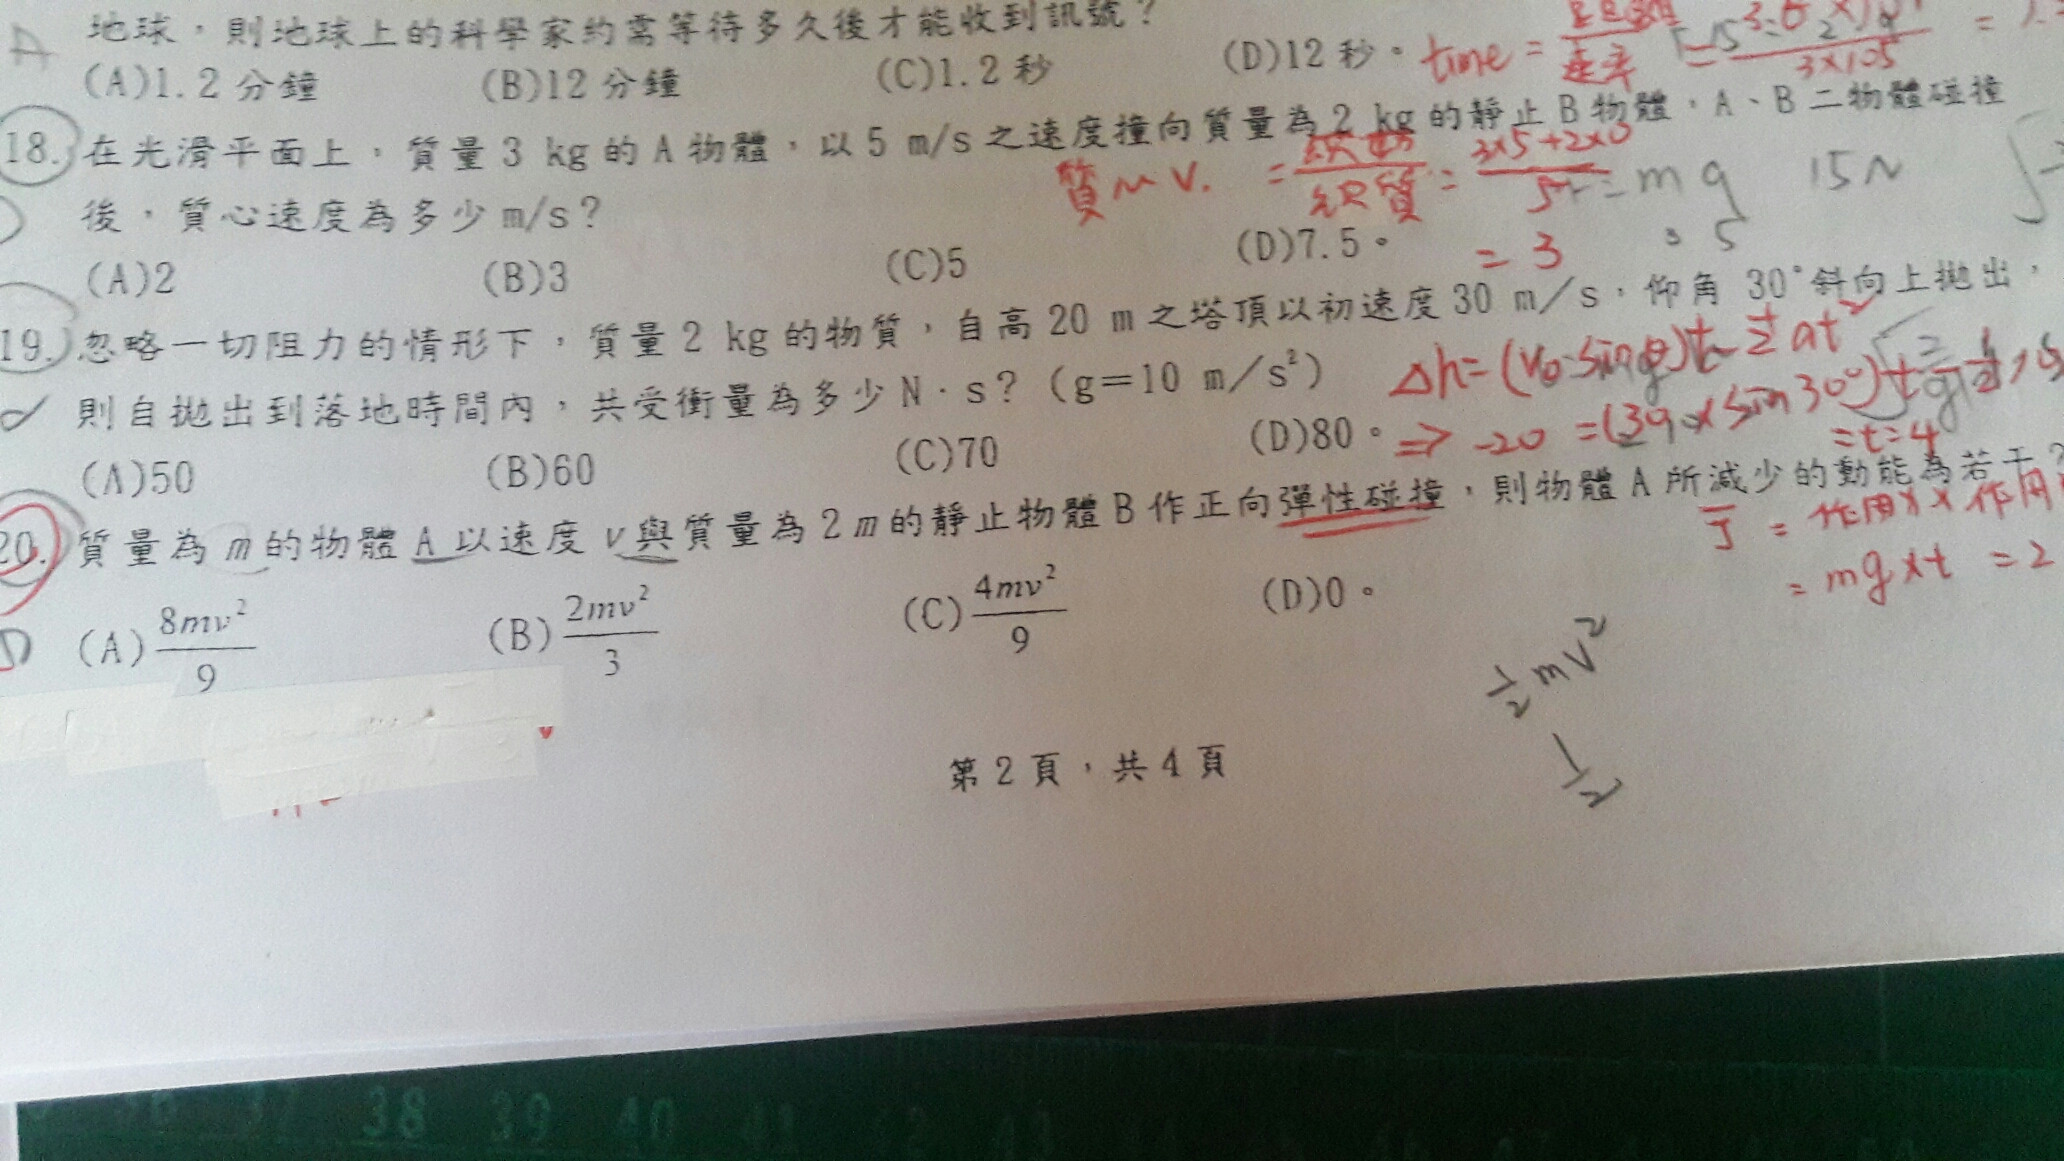 A 地球，則地球上的科學家約需等待多久後才能收到訊號？
(A)1.2 分鐘 (B)12 分鐘 (C)1.2 秒 (D)12 秒。
time =
3×10⁵
18. 在光滑平面上，質量 3 kg 的 A 物體，以 5 m/s 之速度撞向質量為 2 kg 的靜止 B 物體，A、B 二物體碰撞
後，質心速度為多少 m/s？
質 V. = = 3×5+2×0
= mg 15N
(A)2 (B)3 (C)5 (D)7.5。
= 3
19. 忽略一切阻力的情形下，質量 2 kg 的物質，自高 20 m 之塔頂以初速度 30 m／s，仰角 30°斜向上拋出，
則自拋出到落地時間內，共受衝量為多少 N．s？（g＝10 m／s²）
Δh = (V₀·sinθ)t - ½at²
(A)50 (B)60 (C)70 (D)80。
⇒ -20 = (30×sin30°)t
= t = 4
20. 質量為 m 的物體 A 以速度 v 與質量為 2m 的靜止物體 B 作正向彈性碰撞，則物體 A 所減少的動能為若干？
J = 作用力×作用
= mg×t = 2
(A) 8mv²/9 (B) 2mv²/3 (C) 4mv²/9 (D)0。
½mv²
½
第 2 頁，共 4 頁
37 38 39 40 41